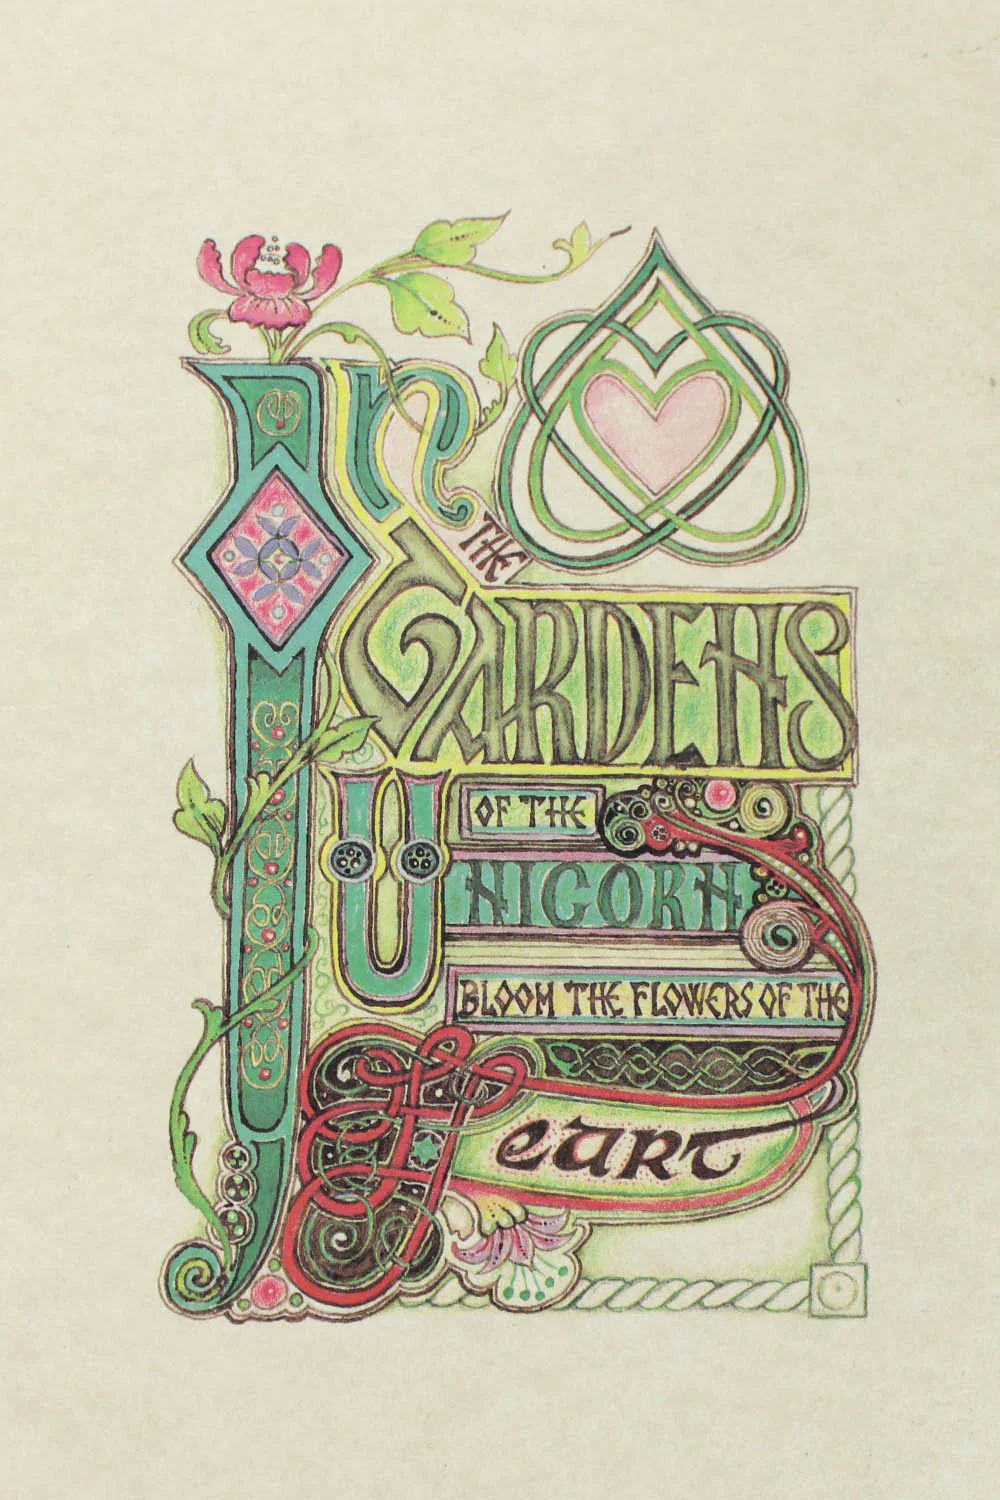 In
THE
GARDENS
OF THE
UNICORN
BLOOM THE FLOWERS OF THE
Heart